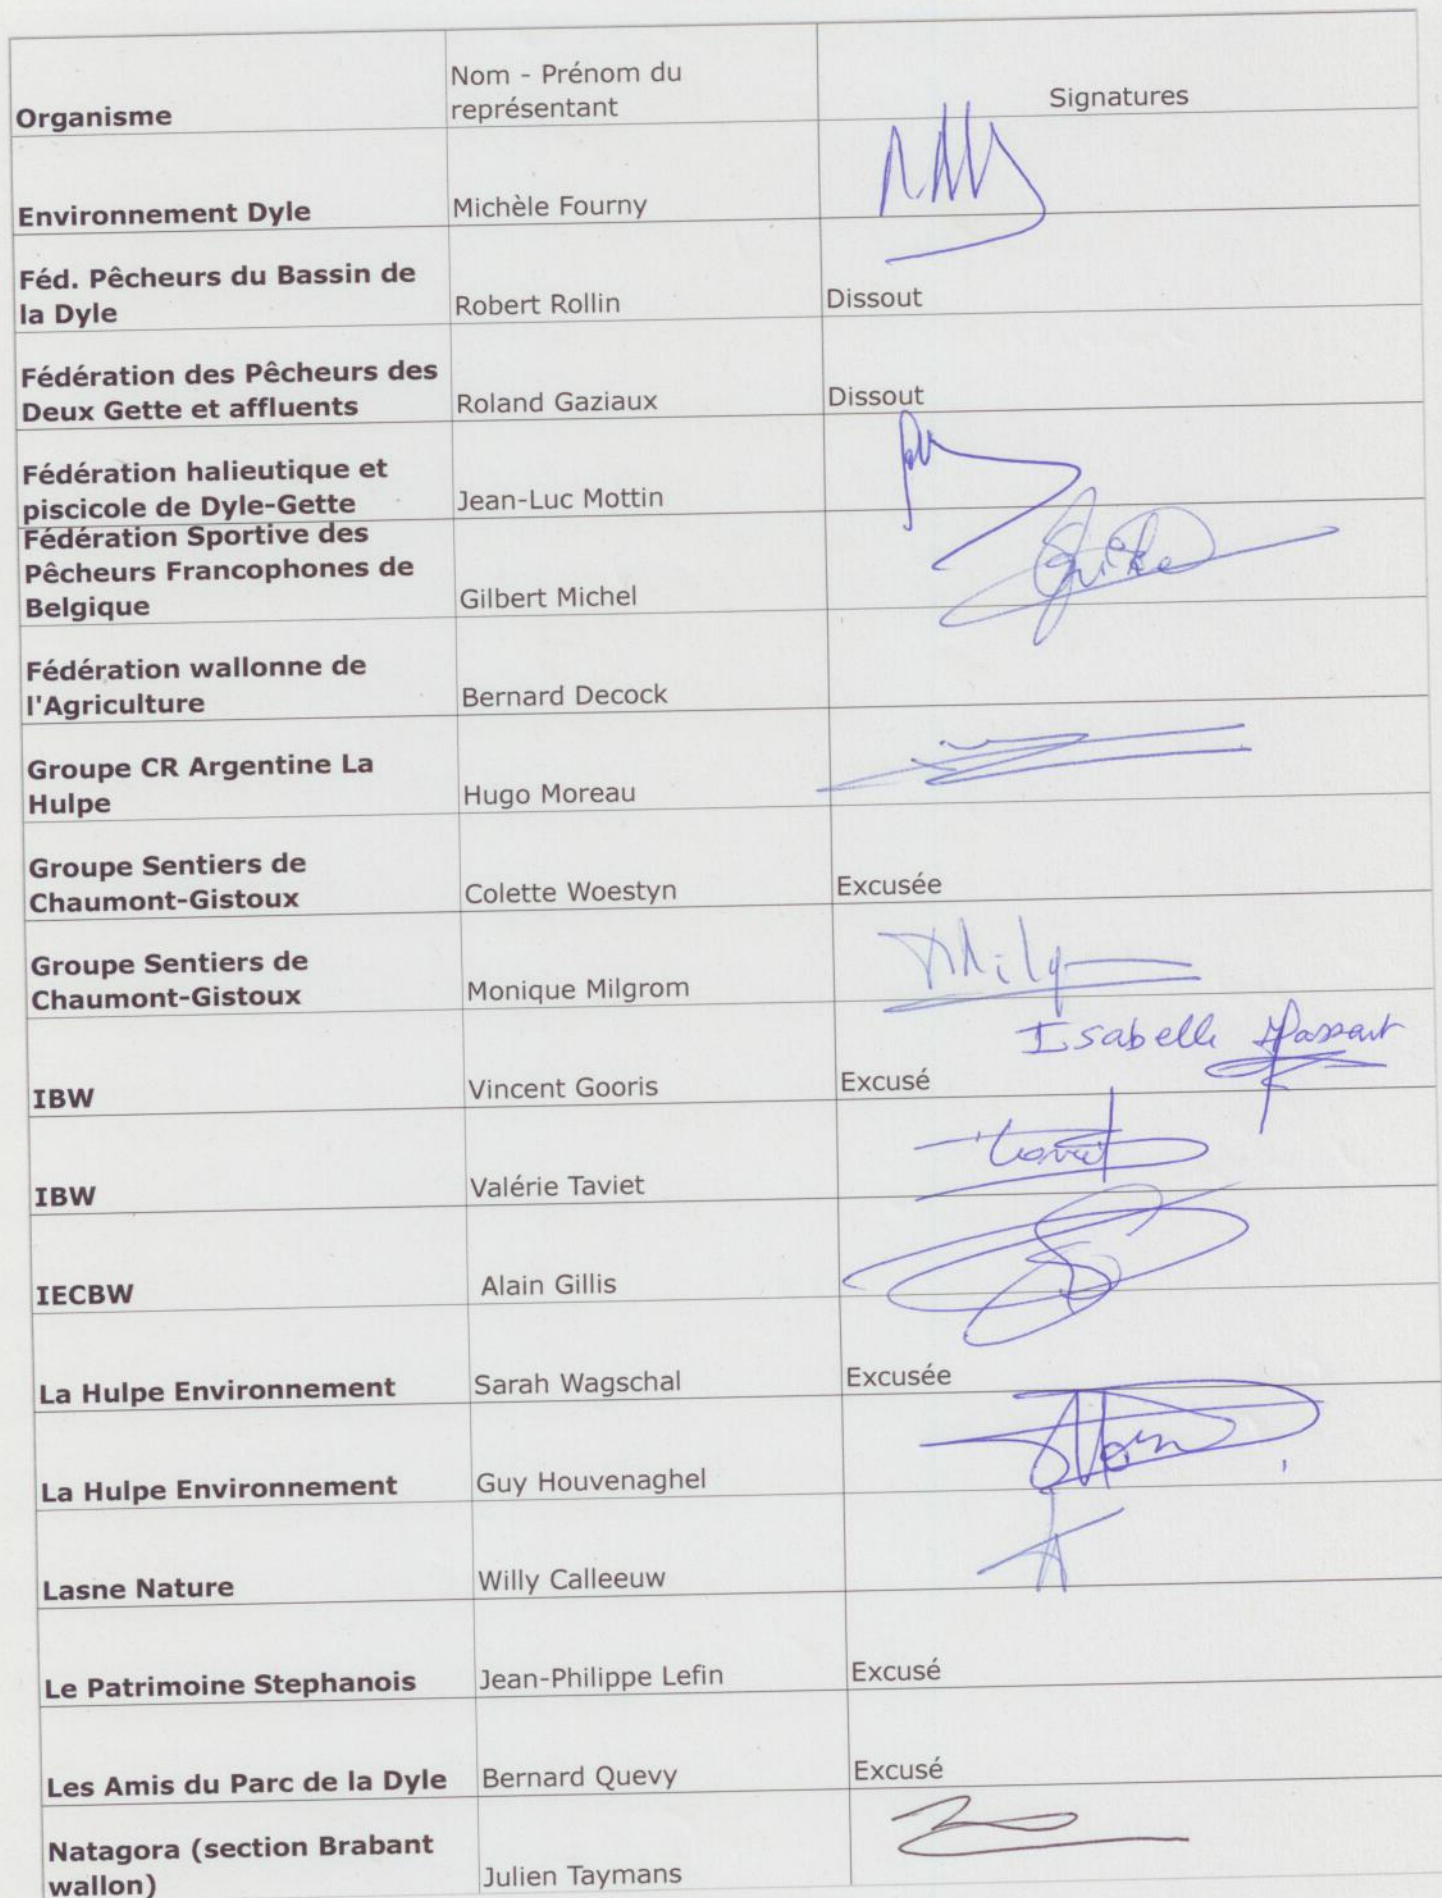 Organisme
Nom - Prénom du
représentant
Signatures
Environnement Dyle
Michèle Fourny
Féd. Pêcheurs du Bassin de
la Dyle
Robert Rollin
Dissout
Fédération des Pêcheurs des
Deux Gette et affluents
Roland Gaziaux
Dissout
Fédération halieutique et
piscicole de Dyle-Gette
Jean-Luc Mottin
Fédération Sportive des
Pêcheurs Francophones de
Belgique
Gilbert Michel
Fédération wallonne de
l'Agriculture
Bernard Decock
Groupe CR Argentine La
Hulpe
Hugo Moreau
Groupe Sentiers de
Chaumont-Gistoux
Colette Woestyn
Excusée
Groupe Sentiers de
Chaumont-Gistoux
Monique Milgrom
Isabelle Massart
IBW
Vincent Gooris
Excusé
IBW
Valérie Taviet
IECBW
Alain Gillis
La Hulpe Environnement
Sarah Wagschal
Excusée
La Hulpe Environnement
Guy Houvenaghel
Lasne Nature
Willy Calleeuw
Le Patrimoine Stephanois
Jean-Philippe Lefin
Excusé
Les Amis du Parc de la Dyle
Bernard Quevy
Excusé
Natagora (section Brabant
wallon)
Julien Taymans